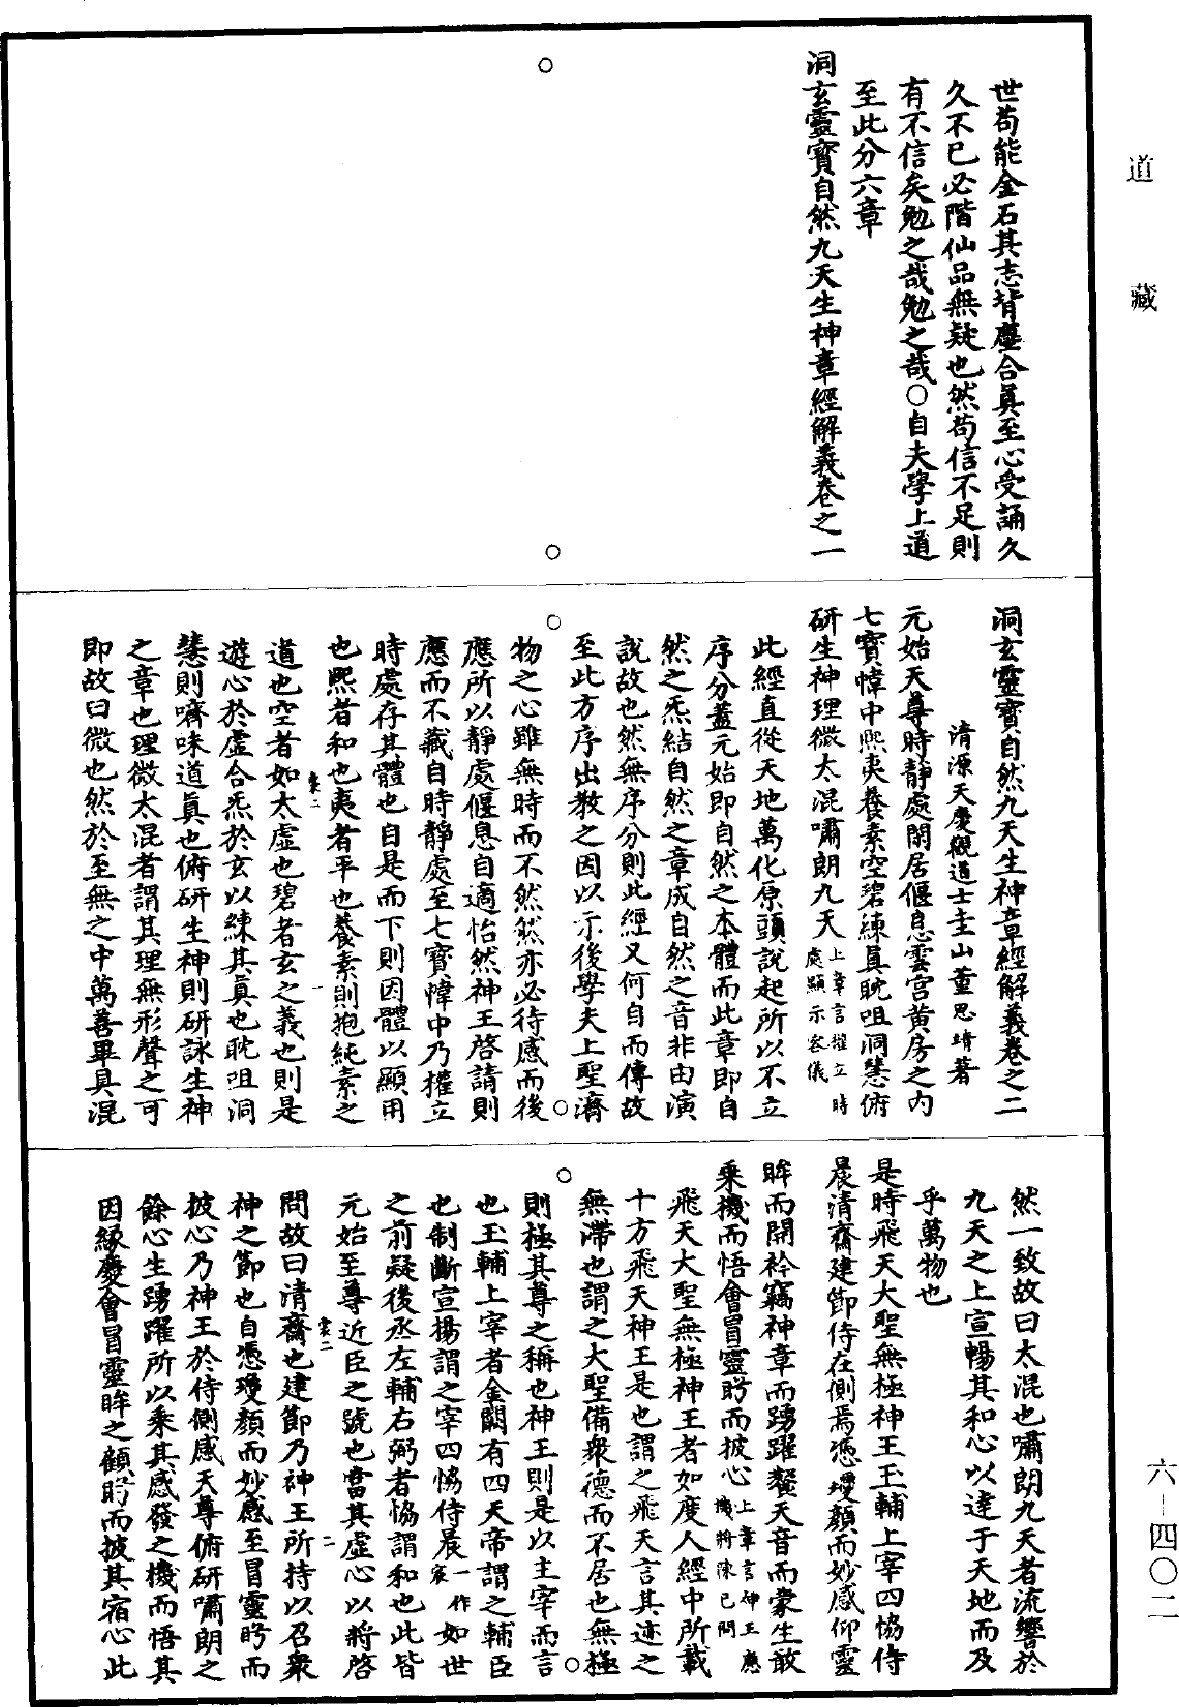 道藏
世苟能金石其志背塵合眞至心受誦久
久不已必階仙品無疑也然苟信不足則
有不信矣勉之哉勉之哉○自夫學上道
至此分六章
洞玄靈寶自然九天生神章經解義卷之一
洞玄靈寶自然九天生神章經解義卷之二
清源天慶觀道士圭山董思靖著
元始天尊時靜處閑居偃息雲宮黃房之內
七寶幃中熙夷養素空碧練眞眈咀洞慧俯
研生神理微太混嘯朗九天上章言權立時
處顯示容儀
此經直從天地萬化原頭說起所以不立
序分蓋元始即自然之本體而此章即自
然之炁結自然之章成自然之音非由演
說故也然無序分則此經又何自而傳故
至此方序出教之因以示後學夫上聖濟
物之心雖無時而不然然亦必待感而後
應所以靜處偃息自適怡然神王啓請則
應而不藏自時靜處至七寶幃中乃權立
時處存其體也自是而下則因體以顯用
也熙者和也夷者平也養素則抱純素之
道也空者如太虛也碧者玄之義也則是
遊心於虛合炁於玄以練其眞也眈咀洞
慧則嚌味道眞也俯研生神則研詠生神
之章也理微太混者謂其理無形聲之可
即故曰微也然於至無之中萬善畢具混
然一致故曰太混也嘯朗九天者流響於
九天之上宣暢其和心以達于天地而及
乎萬物也
是時飛天大聖無極神王玉輔上宰四恊侍
晨清齋建節侍在側焉憑瓊顏而妙感仰靈
眸而開衿竊神章而踴躍餐天音而蒙生敢
乘機而悟會冒靈眄而披心上章言神王應
機將陳已問
飛天大聖無極神王者如度人經中所載
十方飛天神王是也謂之飛天言其迹之
無滯也謂之大聖備衆德而不居也無極
則極其尊之稱也神王則是以主宰而言
也玉輔上宰者金闕有四天帝謂之輔臣
也制斷宣揚謂之宰四恊侍晨一作宸如世
之前疑後丞左輔右弼者恊謂和也此皆
元始至尊近臣之號也當其虛心以將啓
問故曰清齋也建節乃神王所持以召衆
神之節也自憑瓊顏而妙感至冒靈眄而
披心乃神王於侍側感天尊俯研嘯朗之
餘心生踴躍所以乘其感發之機而悟其
因緣慶會冒靈眸之顧眄而披其宿心此
六—四〇二